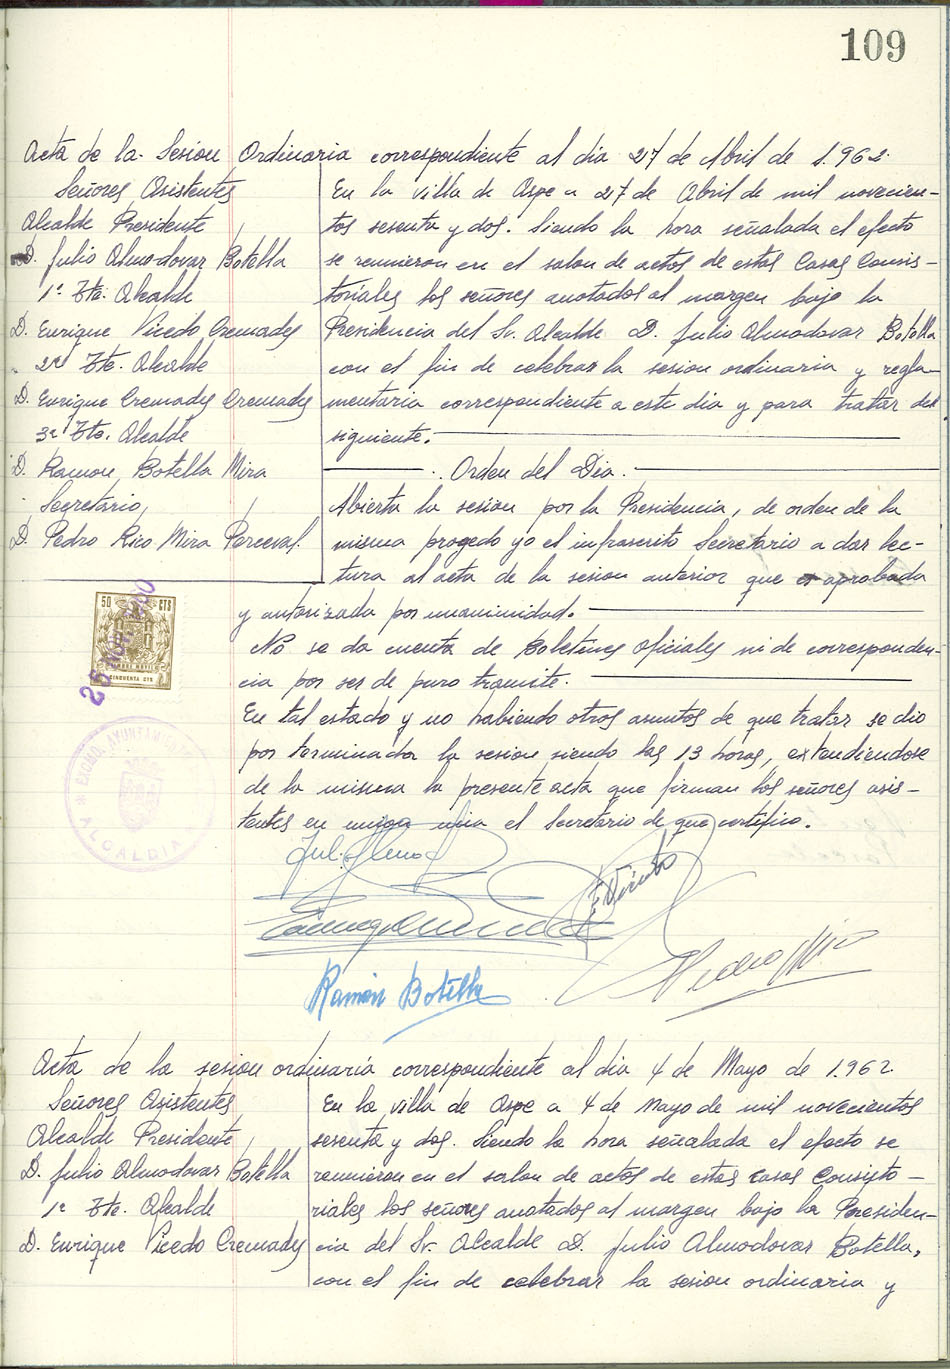 109
Acta de la Sesion Ordinaria correspondiente al dia 27 de Abril de 1.962.
Señores Asistentes
Alcalde Presidente
D. Julio Almodovar Botella
1º Tte. Alcalde
D. Enrique Vicedo Cremades
2º Tte. Alcalde
D. Enrique Cremades Cremades
3º Tte. Alcalde
D. Ramon Botella Mira
Secretario,
D. Pedro Rico Mira Perceval.
En la villa de Aspe a 27 de Abril de mil novecien-
tos sesenta y dos. Siendo la hora señalada el efecto
se reunieron en el salon de actos de estas Casas Consis-
toriales los señores anotados al margen bajo la
Presidencia del Sr. Alcalde D. Julio Almodovar Botella
con el fin de celebrar la sesion ordinaria y regla-
mentaria correspondiente a este dia y para tratar del
siguiente.
. Orden del Dia.
Abierta la sesion por la Presidencia, de orden de la
misma procedo yo el infrascrito Secretario a dar lec-
tura al acta de la sesion anterior que es aprobada
y autorizada por unanimidad.
No se da cuenta de Boletines Oficiales ni de corresponden-
cia por ser de puro tramite.
En tal estado y no habiendo otros asuntos de que tratar se dio
por terminada la sesion siendo las 13 horas, extendiendose
de la misma la presente acta que firman los señores asis-
tentes en union mia el Secretario de que certifico.
50 CTS
CINCUENTA CTS
EXCMO. AYUNTAMIENTO
ALCALDIA
E. Vicedo
Ramón Botella
Pedro Mira
Acta de la sesion ordinaria correspondiente al dia 4 de Mayo de 1.962.
Señores Asistentes
Alcalde Presidente,
D. Julio Almodovar Botella
1º Tte. Alcalde
D. Enrique Vicedo Cremades
En la villa de Aspe a 4 de Mayo de mil novecientos
sesenta y dos. Siendo la hora señalada el efecto se
reunieron en el salon de actos de estas Casas Consisto-
riales los señores anotados al margen bajo la Presiden-
cia del Sr. Alcalde D. Julio Almodovar Botella,
con el fin de celebrar la sesion ordinaria y